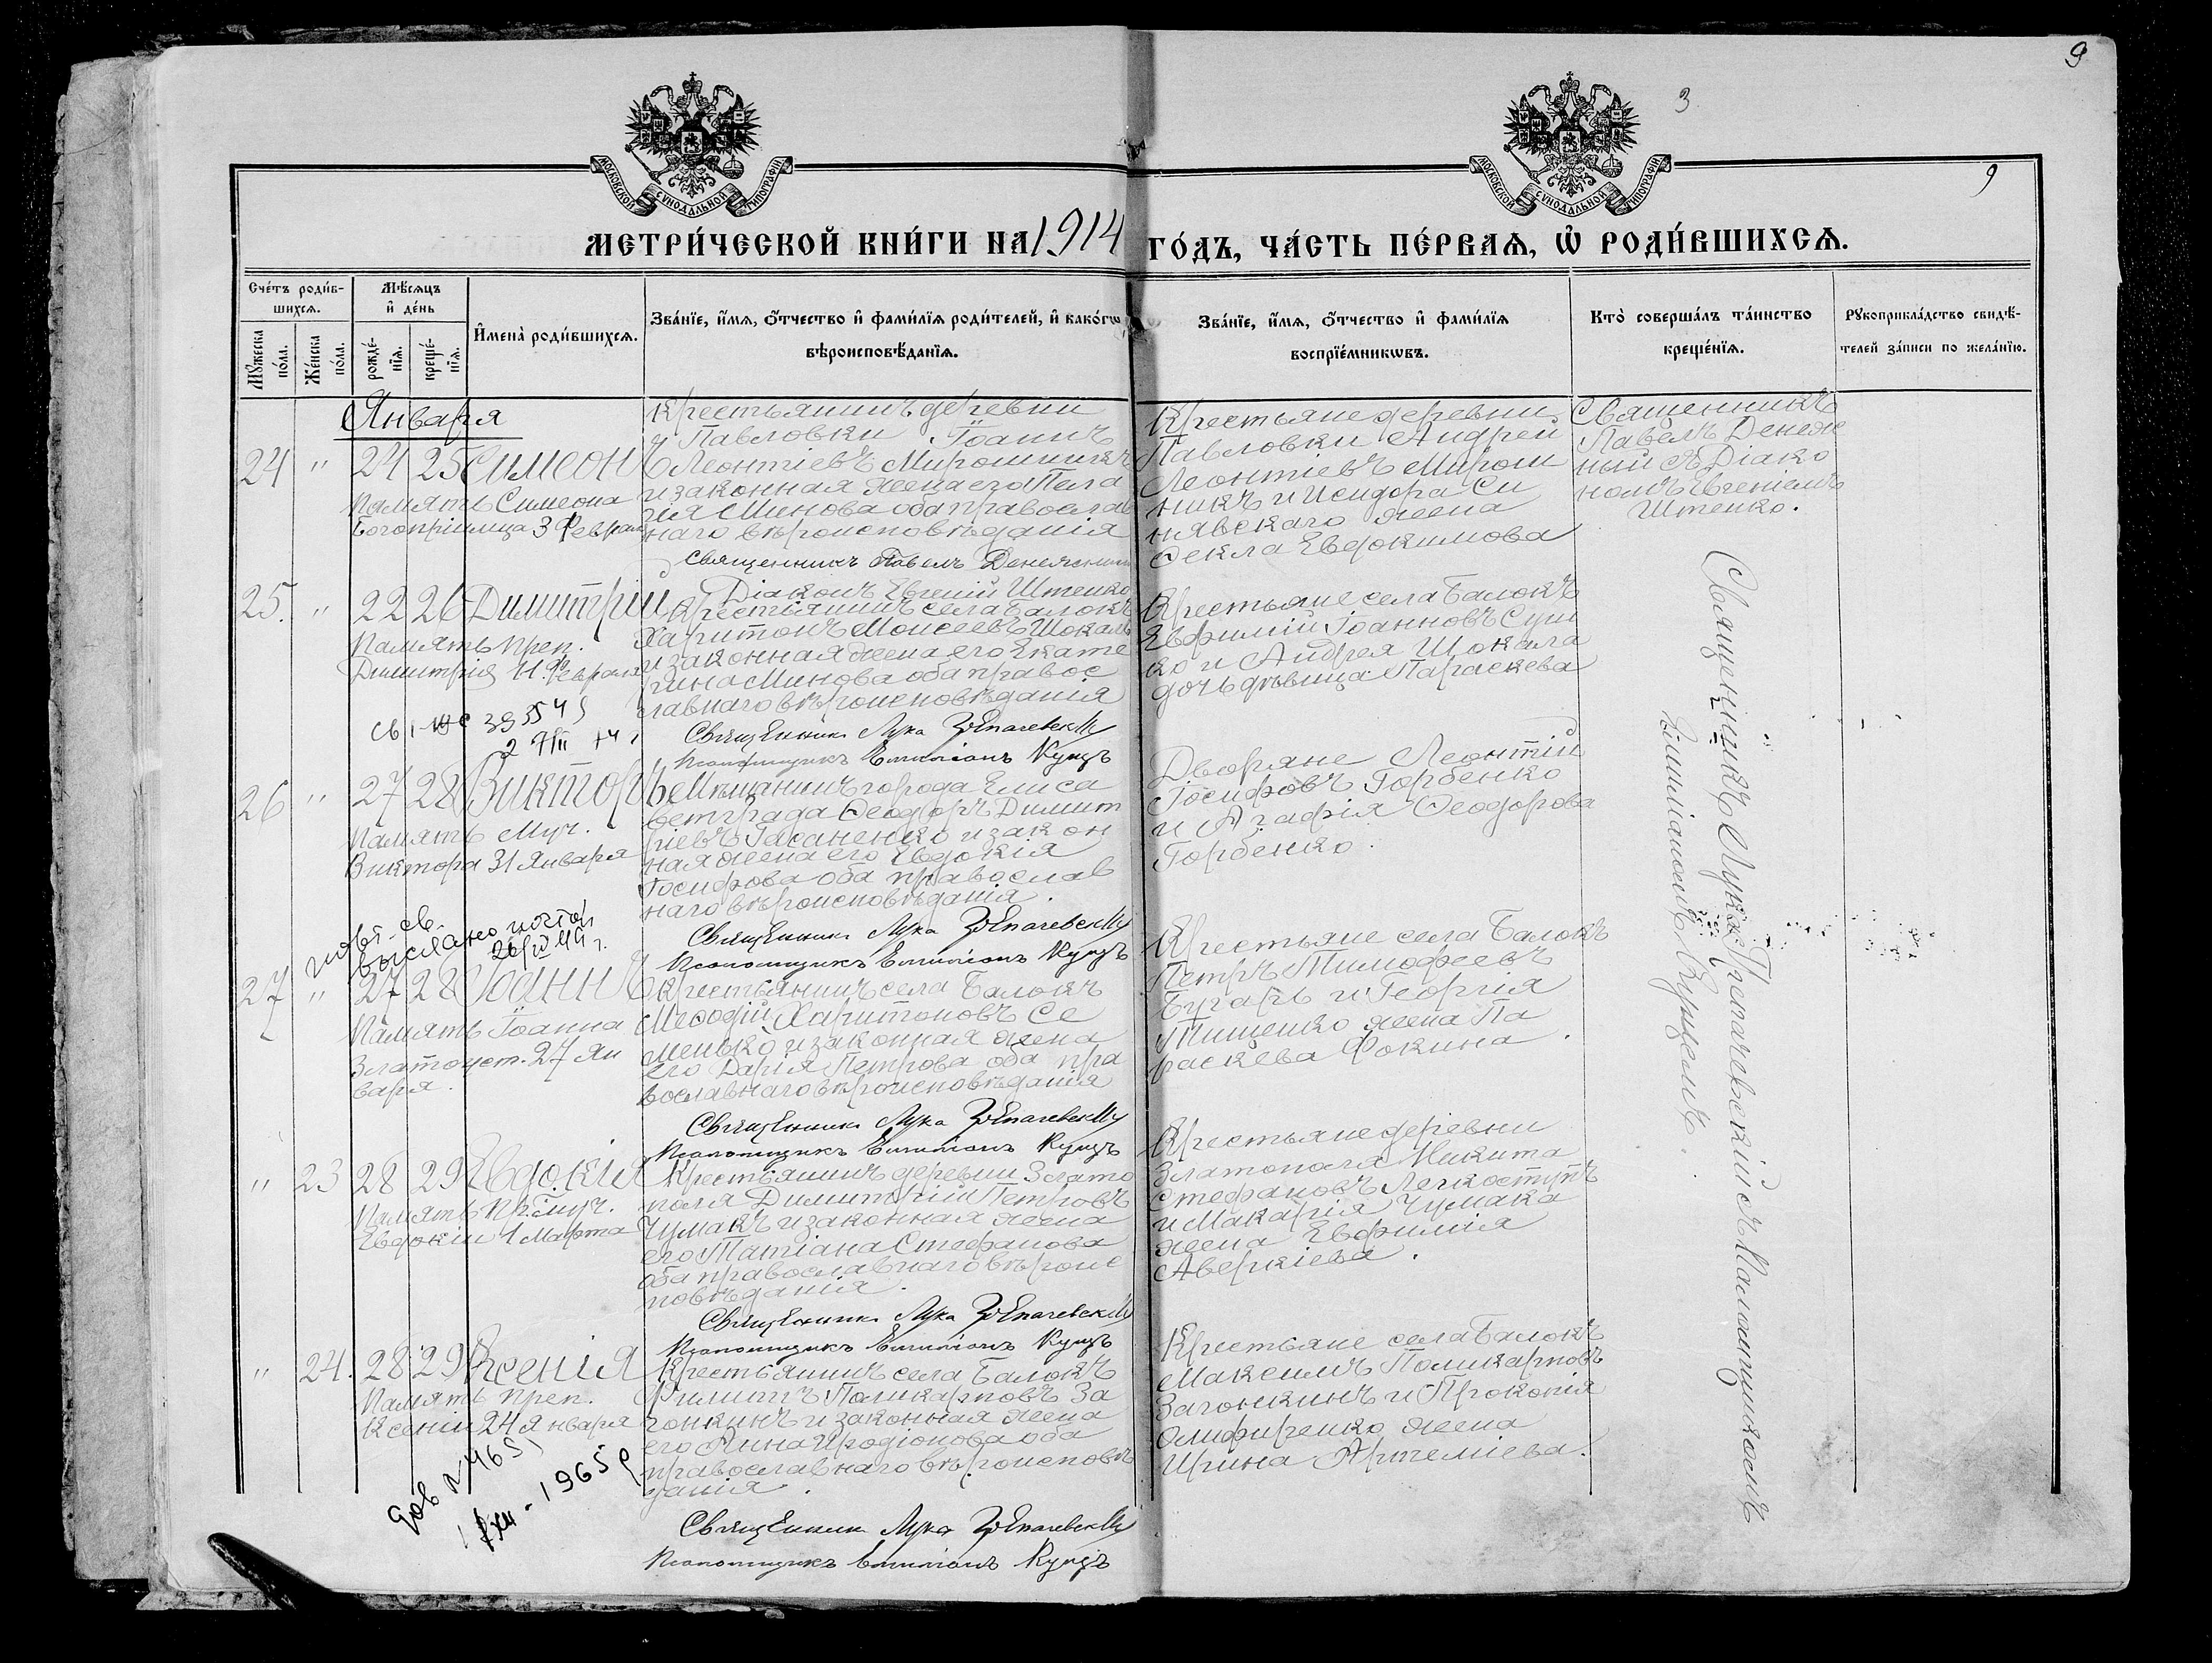 9
3
9
МОСКОВСКОЙ СѴНОДАЛЬНОЙ ТИПОГРАФІИ
МОСКОВСКОЙ СѴНОДАЛЬНОЙ ТИПОГРАФІИ
МЕТРИ́ЧЕСКОЙ КНИ́ГИ НА 1914 ГО́ДЪ, ЧА́СТЬ ПЕ́РВАѦ, Ѡ҆ РОДИ́ВШИХСѦ.
Сче́тъ роди́в-
шихсѧ.
Мꙋ́жеска по́ла.
Же́нска по́ла.
Мѣ́сѧцъ
и҆ де́нь
рожде́-
нїѧ.
креще́-
нїѧ.
И҆мена̀ роди́вшихсѧ.
Зва́нїе, и҆́мѧ, ѻ҆́тчество и҆ фами́лїѧ роди́телей, и҆ како́гѡ
вѣроисповѣ́данїѧ.
Зва́нїе, и҆́мѧ, ѻ҆́тчество и҆ фами́лїѧ
воспрїе́мникѡвъ.
Кто̀ соверша́лъ та́инство
креще́нїѧ.
Рꙋкоприкла́дство свидѣ́-
телей за́писи по жела́нїю.
Января
24 " 24 25 Симеонъ
Память Симеона
Богопріимца 3 Февраля
Крестьянинъ деревни
Павловки Іоаннъ
Леонтіевъ Мирошникъ
и законная жена его Пела
гія Минова оба православ
наго вѣроисповѣданія
Священникъ Павелъ Денежный
Діаконъ Евгеній Штенко
Крестьяне деревни
Павловки Андрей
Леонтіевъ Мирош
никъ и Исидора Си
нявскаго жена
Ѳекла Евдокимова
Священникъ
Павелъ Денеж
ный съ Діако
номъ Евгеніемъ
Штенко.
25. " 22 26 Димитрій
Память преп.
Димитрія 11 Февраля
39554
Крестьянинъ села Балокъ
Харитонъ Моисеевъ Шокала
и законная жена его Екате
рина Минова оба правос
лавнаго вѣроисповѣданія
Священникъ Лука Трепачевскій
Псаломщикъ Емиліанъ Куцъ
Крестьяне села Балокъ
Евфимій Іоанновъ Суш
ко и Андрея Шокала
дочь дѣвица Параскева
26 " 27 28 Викторъ
Память Муч.
Виктора 31 Января
Мѣщанинъ города Елиса
ветграда Ѳеодоръ Димит
ріевъ Гасаненко и закон
ная жена его Евдокія
Іосифова оба православ
наго вѣроисповѣданія.
Священникъ Лука Трепачевскій
Псаломщикъ Емиліанъ Куцъ
Дворяне Леонтій
Іосифовъ Горбенко
и Агафія Ѳеодорова
Горбенко.
повт. св.
выслано почтой
27 " 27 28 Іоаннъ
Память Іоанна
Златоуст. 27 Ян
варя.
Крестьянинъ села Балокъ
Меѳодій Харитоновъ Се
менько и законная жена
его Дарія Петрова оба пра
вославнаго вѣроисповѣданія
Священникъ Лука Трепачевскій
Псаломщикъ Емиліанъ Куцъ
Крестьяне села Балокъ
Петръ Тимофеевъ
Бугаръ и Георгія
Тищенко жена Па
раскева Фокина.
" 23 28 29 Евдокія
Память пр. муч.
Евдокіи 1 Марта
Крестьянинъ деревни Злато
поля Димитрій Петровъ
Чумакъ и законная жена
его Татіана Стефанова
оба православнаго вѣроис
повѣданія.
Священникъ Лука Трепачевскій
Псаломщикъ Емиліанъ Куцъ
Крестьяне деревни
Златополя Никита
Стефановъ Легкоступъ
и Макарія Чумака
жена Евфимія
Аверкіева.
" 24. 28 29 Ксенія
Память преп.
Ксеніи 24 Января
1965
Крестьянинъ села Балокъ
Филиппъ Поликарповъ За
гонкинъ и законная жена
его Анна Иродіонова оба
православнаго вѣроисповѣ
данія.
Священникъ Лука Трепачевскій
Псаломщикъ Емиліанъ Куцъ
Крестьяне села Балокъ
Максимъ Поликарповъ
Загонкинъ и Прокопія
Олифиренко жена
Ирина Артеміева.
Священникъ Лука Трепачевскій съ Псаломщикомъ
Емиліаномъ Куцемъ.